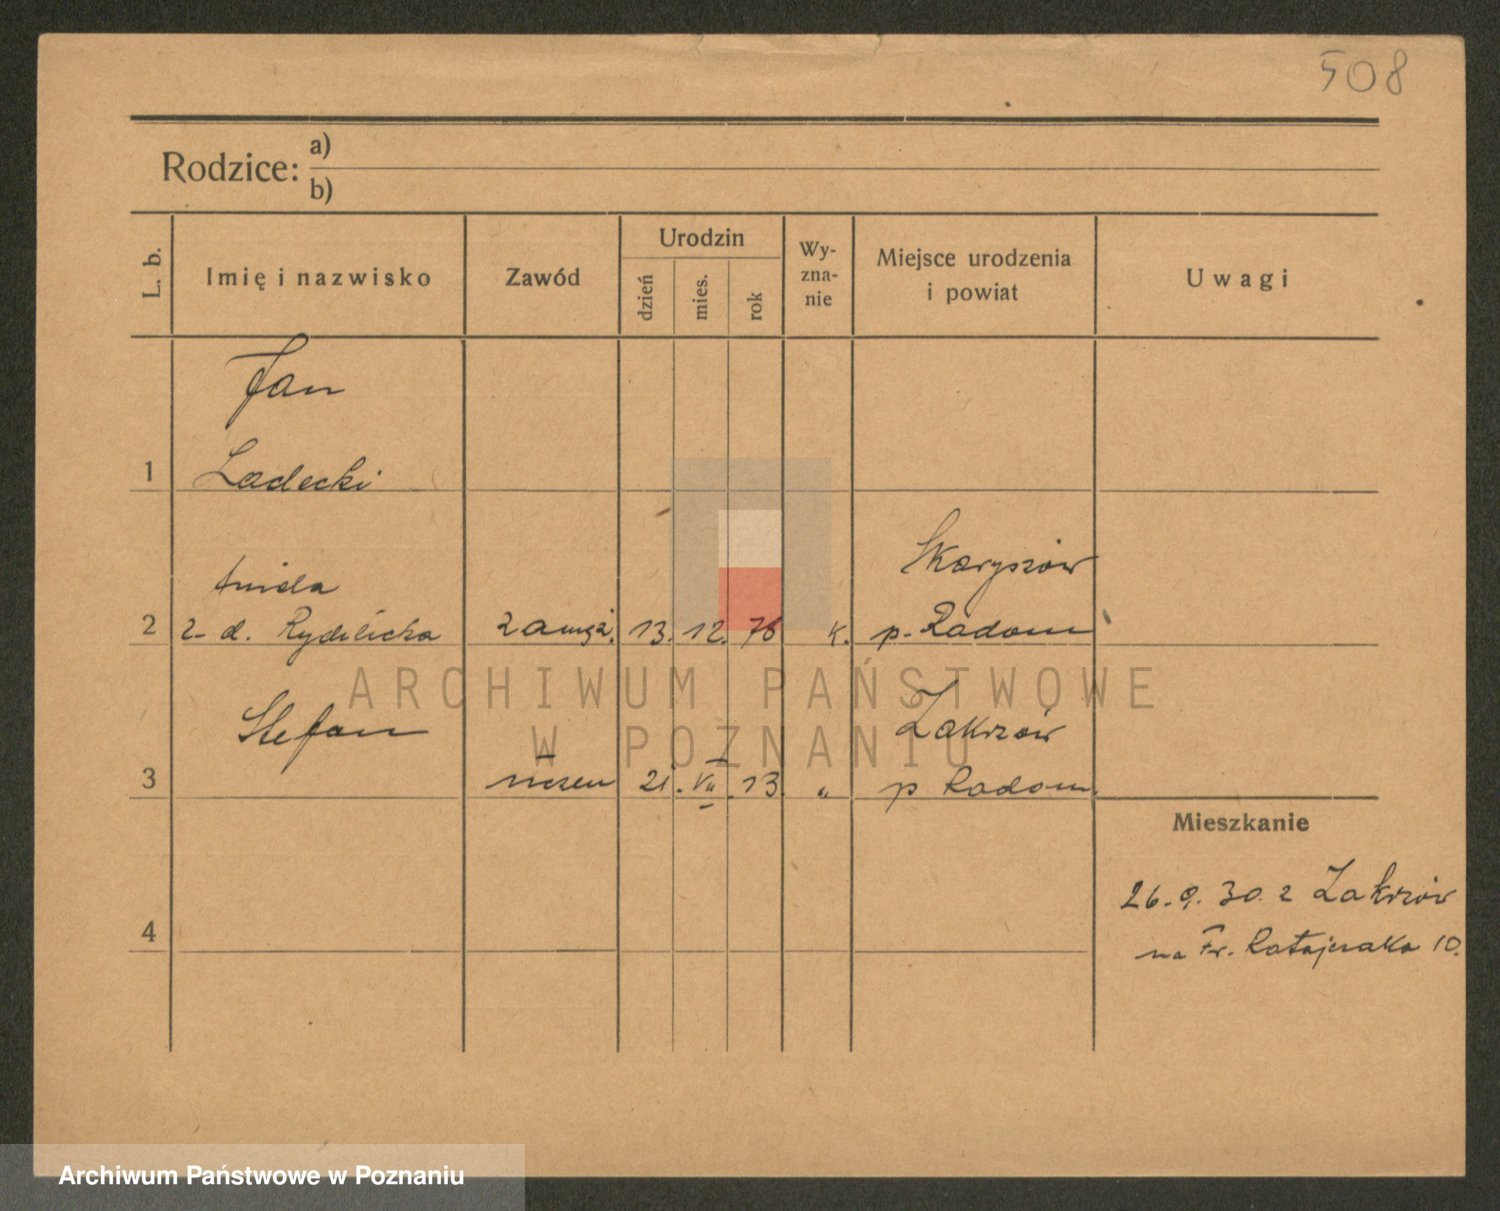 508
Rodzice: a)
b)
L. b.
Imię i nazwisko
Zawód
Urodzin
dzień
mies.
rok
Wy-
zna-
nie
Miejsce urodzenia
i powiat
Uwagi
Jan
1 Ladecki
Aniela
Skaryszów
2 z d. Rydelicka zamęż. 13. 12. 78 k. p. Radom
Stefan
Zakrzów
3 uczeń 21. VII. 13 " p Radom
Mieszkanie
26. 9. 30. z Zakrzów
4
na Fr. Ratajczaka 10.
ARCHIWUM PAŃSTWOWE
W POZNANIU
Archiwum Państwowe w Poznaniu